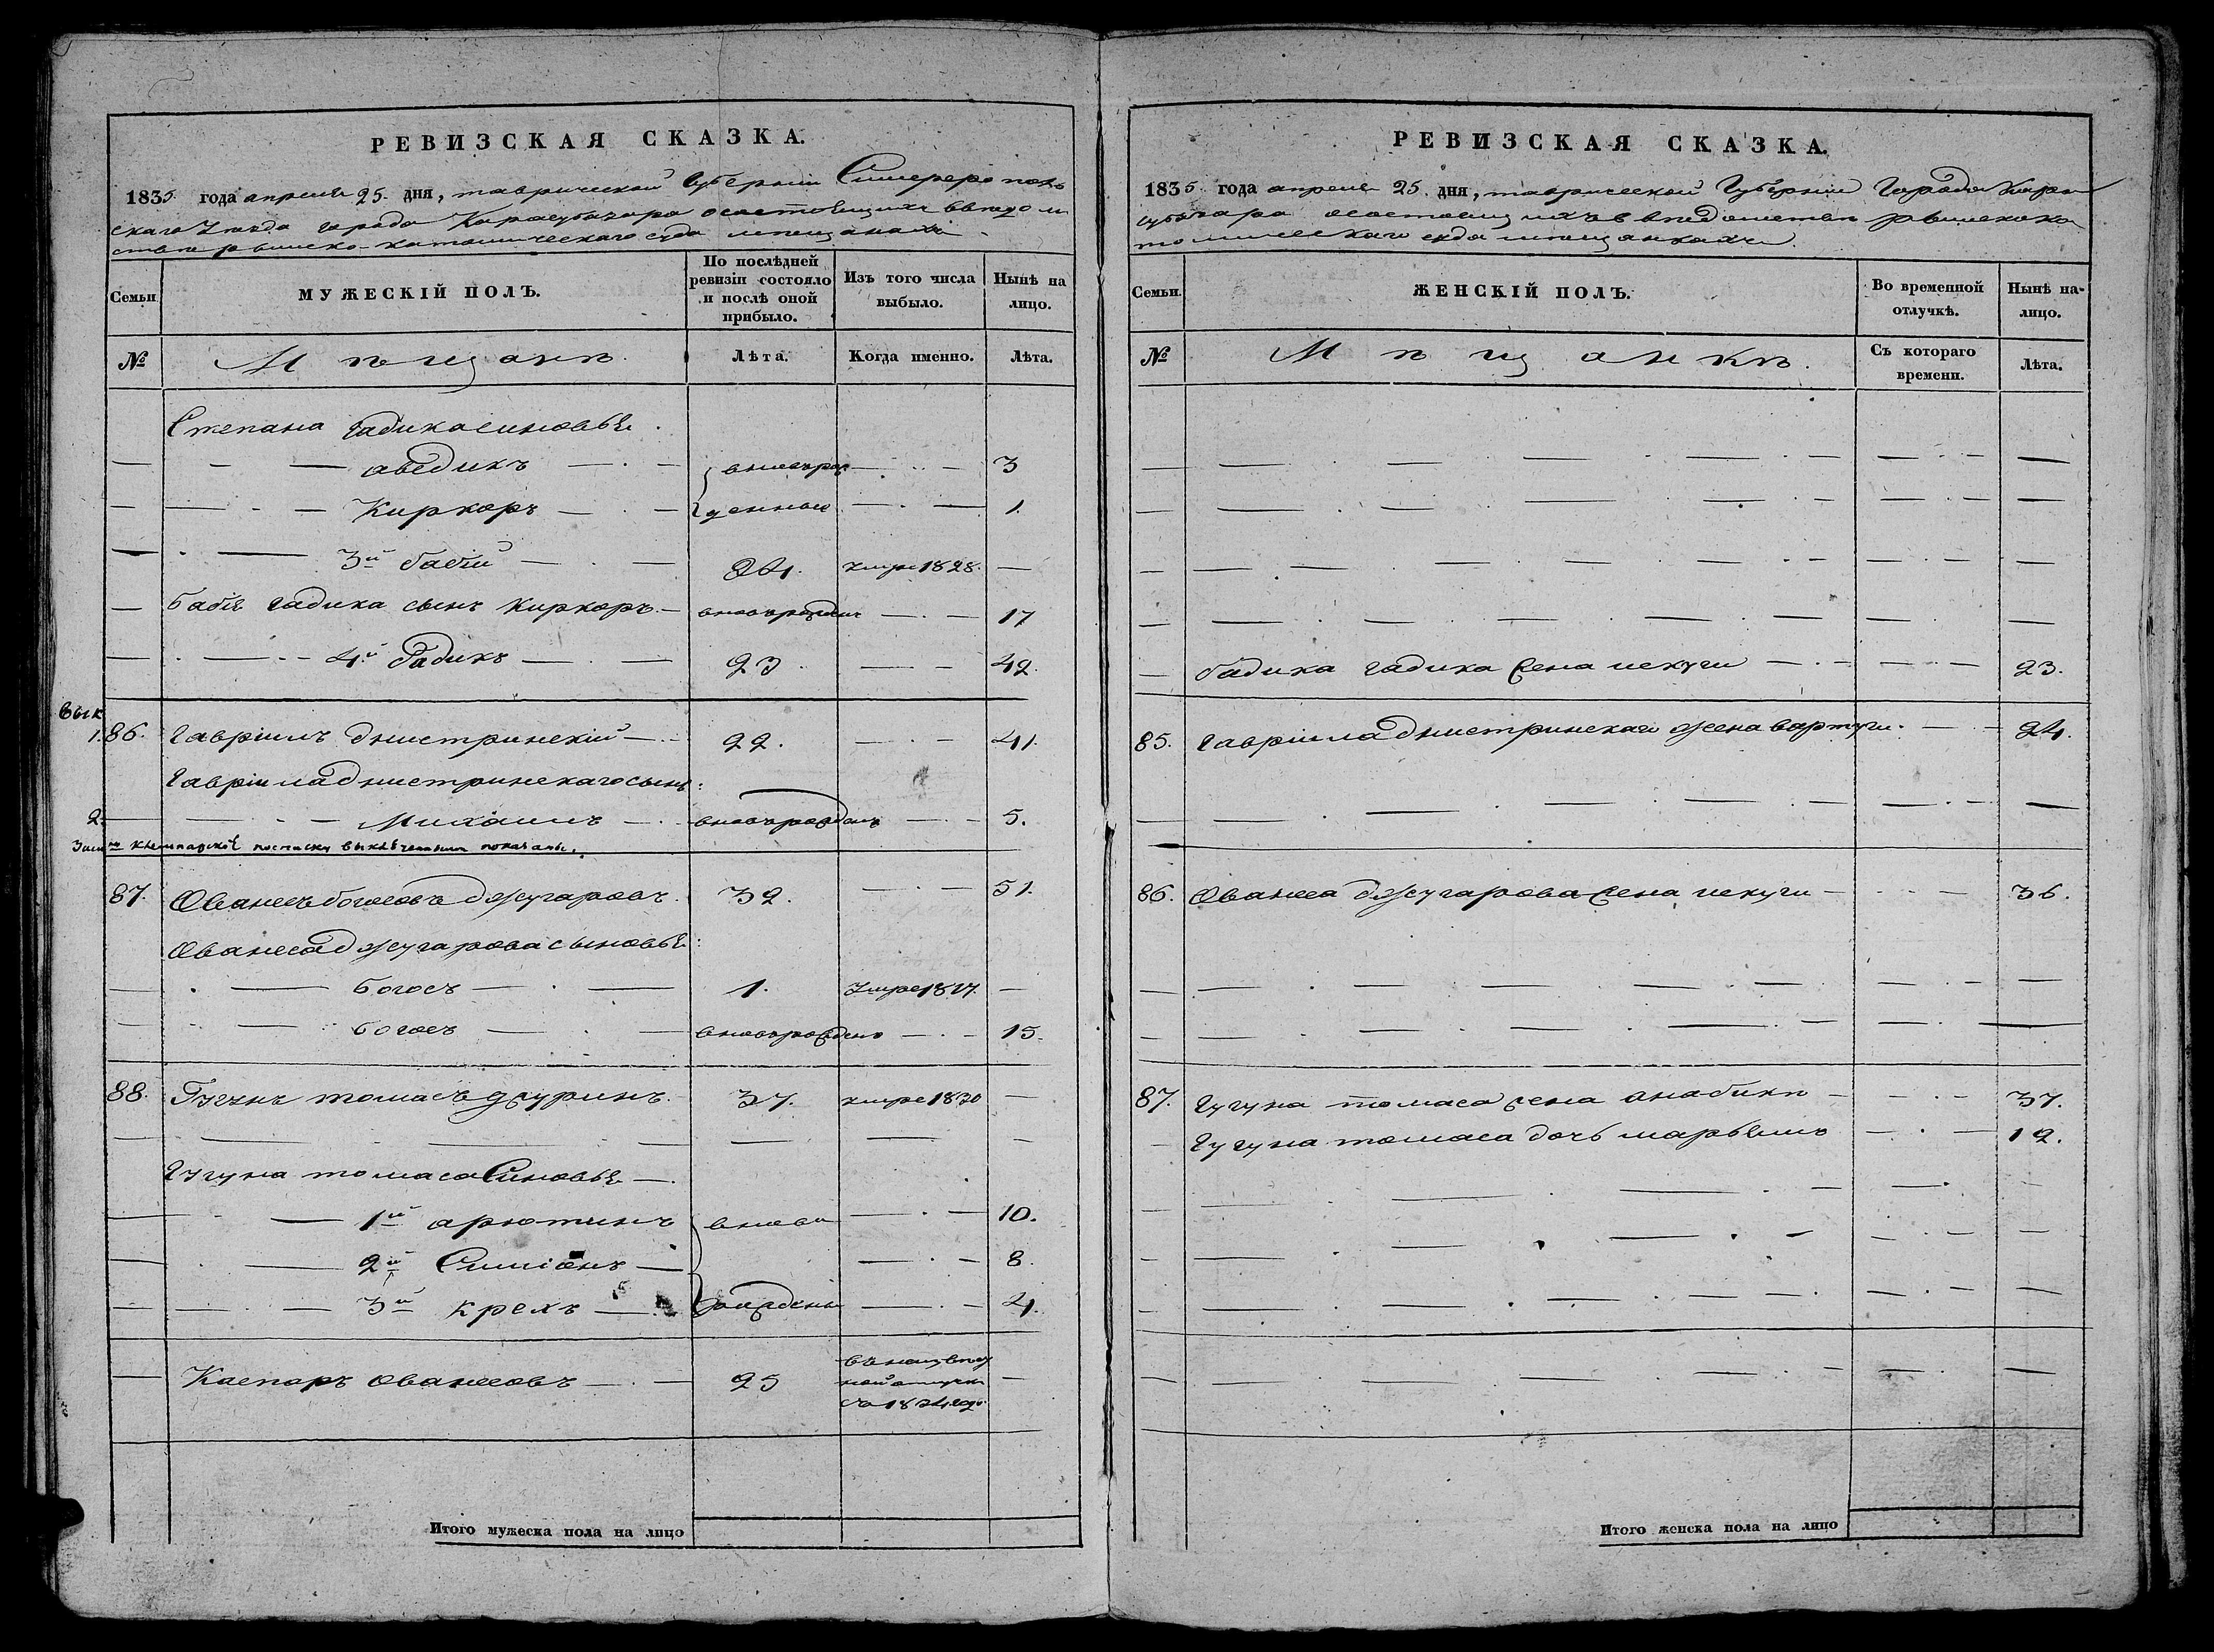 РЕВИЗСКАЯ СКАЗКА.
1835 года апреля 25. дня, таврической Губерніи Симферополь
скаго Уезда города Карасубазара осостоящихъ введом
стве римско-католическаго суда мещанахъ.
Семьи
МУЖЕСКІЙ ПОЛЪ.
По послѣдней ревизіи состояло и послѣ оной прибыло.
Изъ того числа выбыло.
Нынѣ на лицо.
№
Мѣщанѣ.
Лѣта.
Когда именно.
Лѣта.
Степана Гадика синовье.
— аведикъ — вновърож 3
— Киркоръ — денные — 1.
— 3й бабій — 24. умре 1828. —
бабія гадика сынъ Киркоръ — вновърожденъ — 17
— 4й бадикъ — 23. — 42.
Вык
1. 86. Гавріилъ днистринскій — 22. — 41.
Гавріила днистринскаго сынъ:
2. — Михаилъ — вновърожденъ — 5.
87. Ованесъ богосовъ джугаровъ. 32. — 51.
Ованеса джугарова сыновье:
— богосъ — 1. Умре 1817. —
— богосъ — вновърожденъ — 15.
88. Гугунъ томасъ 37. умре 1830 —
Гугуна томаса Синовье —
— 1й арютинъ вновь — 10.
— 2й Симіонъ — 8.
— 3й крехъ — рождены — 4.
— Каспаръ ованесовъ — 25
Итого мужеска пола на лицо
РЕВИЗСКАЯ СКАЗКА.
1835 года апреля 25. дня, таврической Губерніи Города Кара
субазара осостоящихъ в ведомстве римскока
толическаго суда мещанкахъ.
Семьи.
ЖЕНСКІЙ ПОЛЪ.
Во временной отлучкѣ.
Нынѣ на-лицо.
№
Мѣщанкѣ.
Съ котораго времени.
Лѣта.
бадика гадика жена искуги — 23.
85. Гавріила днистринскаго жена вартуги. — 24.
86. Ованеса джугарова жена искуги — 36.
87. Гугуна томаса жена анабики — 37.
Гугуна томаса дочь марьямъ — 12.
Итого женска пола на лицо